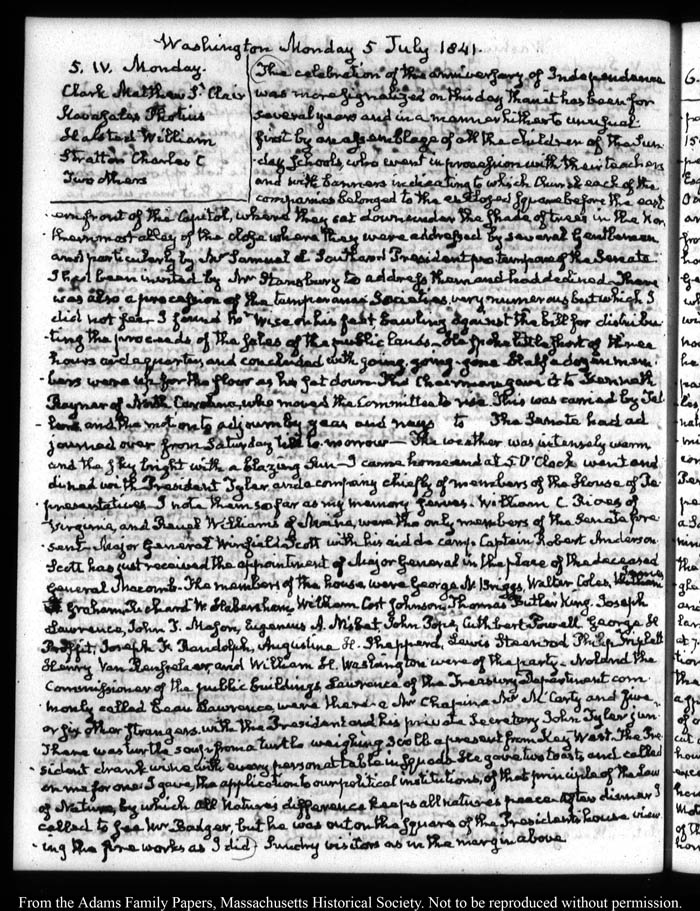 Washington Monday 5 July 1841.
5. IV. Monday.
Clark Matthew St. Clair
Kavasales Photius
Halsted William
Stratton Charles C
Two others
The celebration of the anniversary of Independence
was more signalized on this day than it has been for
several years and in a manner hitherto unusual
first by an assemblage of all the children of the Sun-
day Schools, who went in procession with their teachers
and with banners indicating to which Church each of the
companies belonged to the enclosed Square before the east
ern front of the Capitol, where they sat down under the shade of trees in the Nor
thernmost alley of the close where they were addressed by several Gentlemen
and particularly by Mr Samuel L. Southard President pro tempore of the Senate
I had been invited by Mr Stansbury to address them and had declined. There
was also a procession of the temperance Societies, very numerous but which I
did not see. I found Mr Wise on his feet bawling against the bill for distribu
ting the proceeds of the sales of the public lands. He spoke little short of three
hours and a quarter, and concluded with going, going, gone. Half a dozen mem-
bers were up for the floor as he sat down. The Chairman gave it to Kenneth
Rayner of North Carolina, who moved the Committee to rise. This was carried by Tel
lers and the motion to adjourn by yeas and nays to The Senate had ad
journed over from Saturday till to-morrow— The weather was intensely warm
and the sky bright with a blazing Sun— I came home and at 5 O'Clock went and
dined with President Tyler, and a company chiefly of members of the House of Re-
presentatives. I note them so far as my memory serves. William C. Rives of
Virginia, and Reuel Williams of Maine, were the only members of the Senate pre
sent. Major General Winfield Scott with his aid de camp Captain Robert Anderson
Scott has just received the appointment of Major General in the place of the deceased
General Macomb. The members of the house were George N. Briggs, Walter Coles,
Graham, Richard W. Habersham, William Cost Johnson, Thomas Butler King, Joseph
Lawrence, John T. Mason, Eugenius A. Nisbet, John Pope, Cuthbert Powell George H
Proffit, Joseph F. Randolph, Augustine H. Shepperd, Lewis Steenrod Philip Triplett
Henry Van Rensselaer, and William H. Washington were of the party. Noland the
Commissioner of the public buildings, Lawrence of the Treasury Department com
monly called Beau Lawrence, were there. a Mr Chapin, a Mr McCarty and five
or six other Strangers, with the President and his private Secretary John Tyler jun
There was turtle soup from a turtle weighing 300 lb a present from Key West. The Pre
sident drank wine with every person at table in squads. He gave two toasts and called
on me for one. I gave, the application to our political institutions, of that principle of the Law
of Nature, by which all Nature's difference keeps all natures peace. After dinner I
called to see Mr Badger, but he was out on the Square of the President's house view
ing the fire works as I did) Sundry visitors as in the margin above
From the Adams Family Papers, Massachusetts Historical Society. Not to be reproduced without permission.